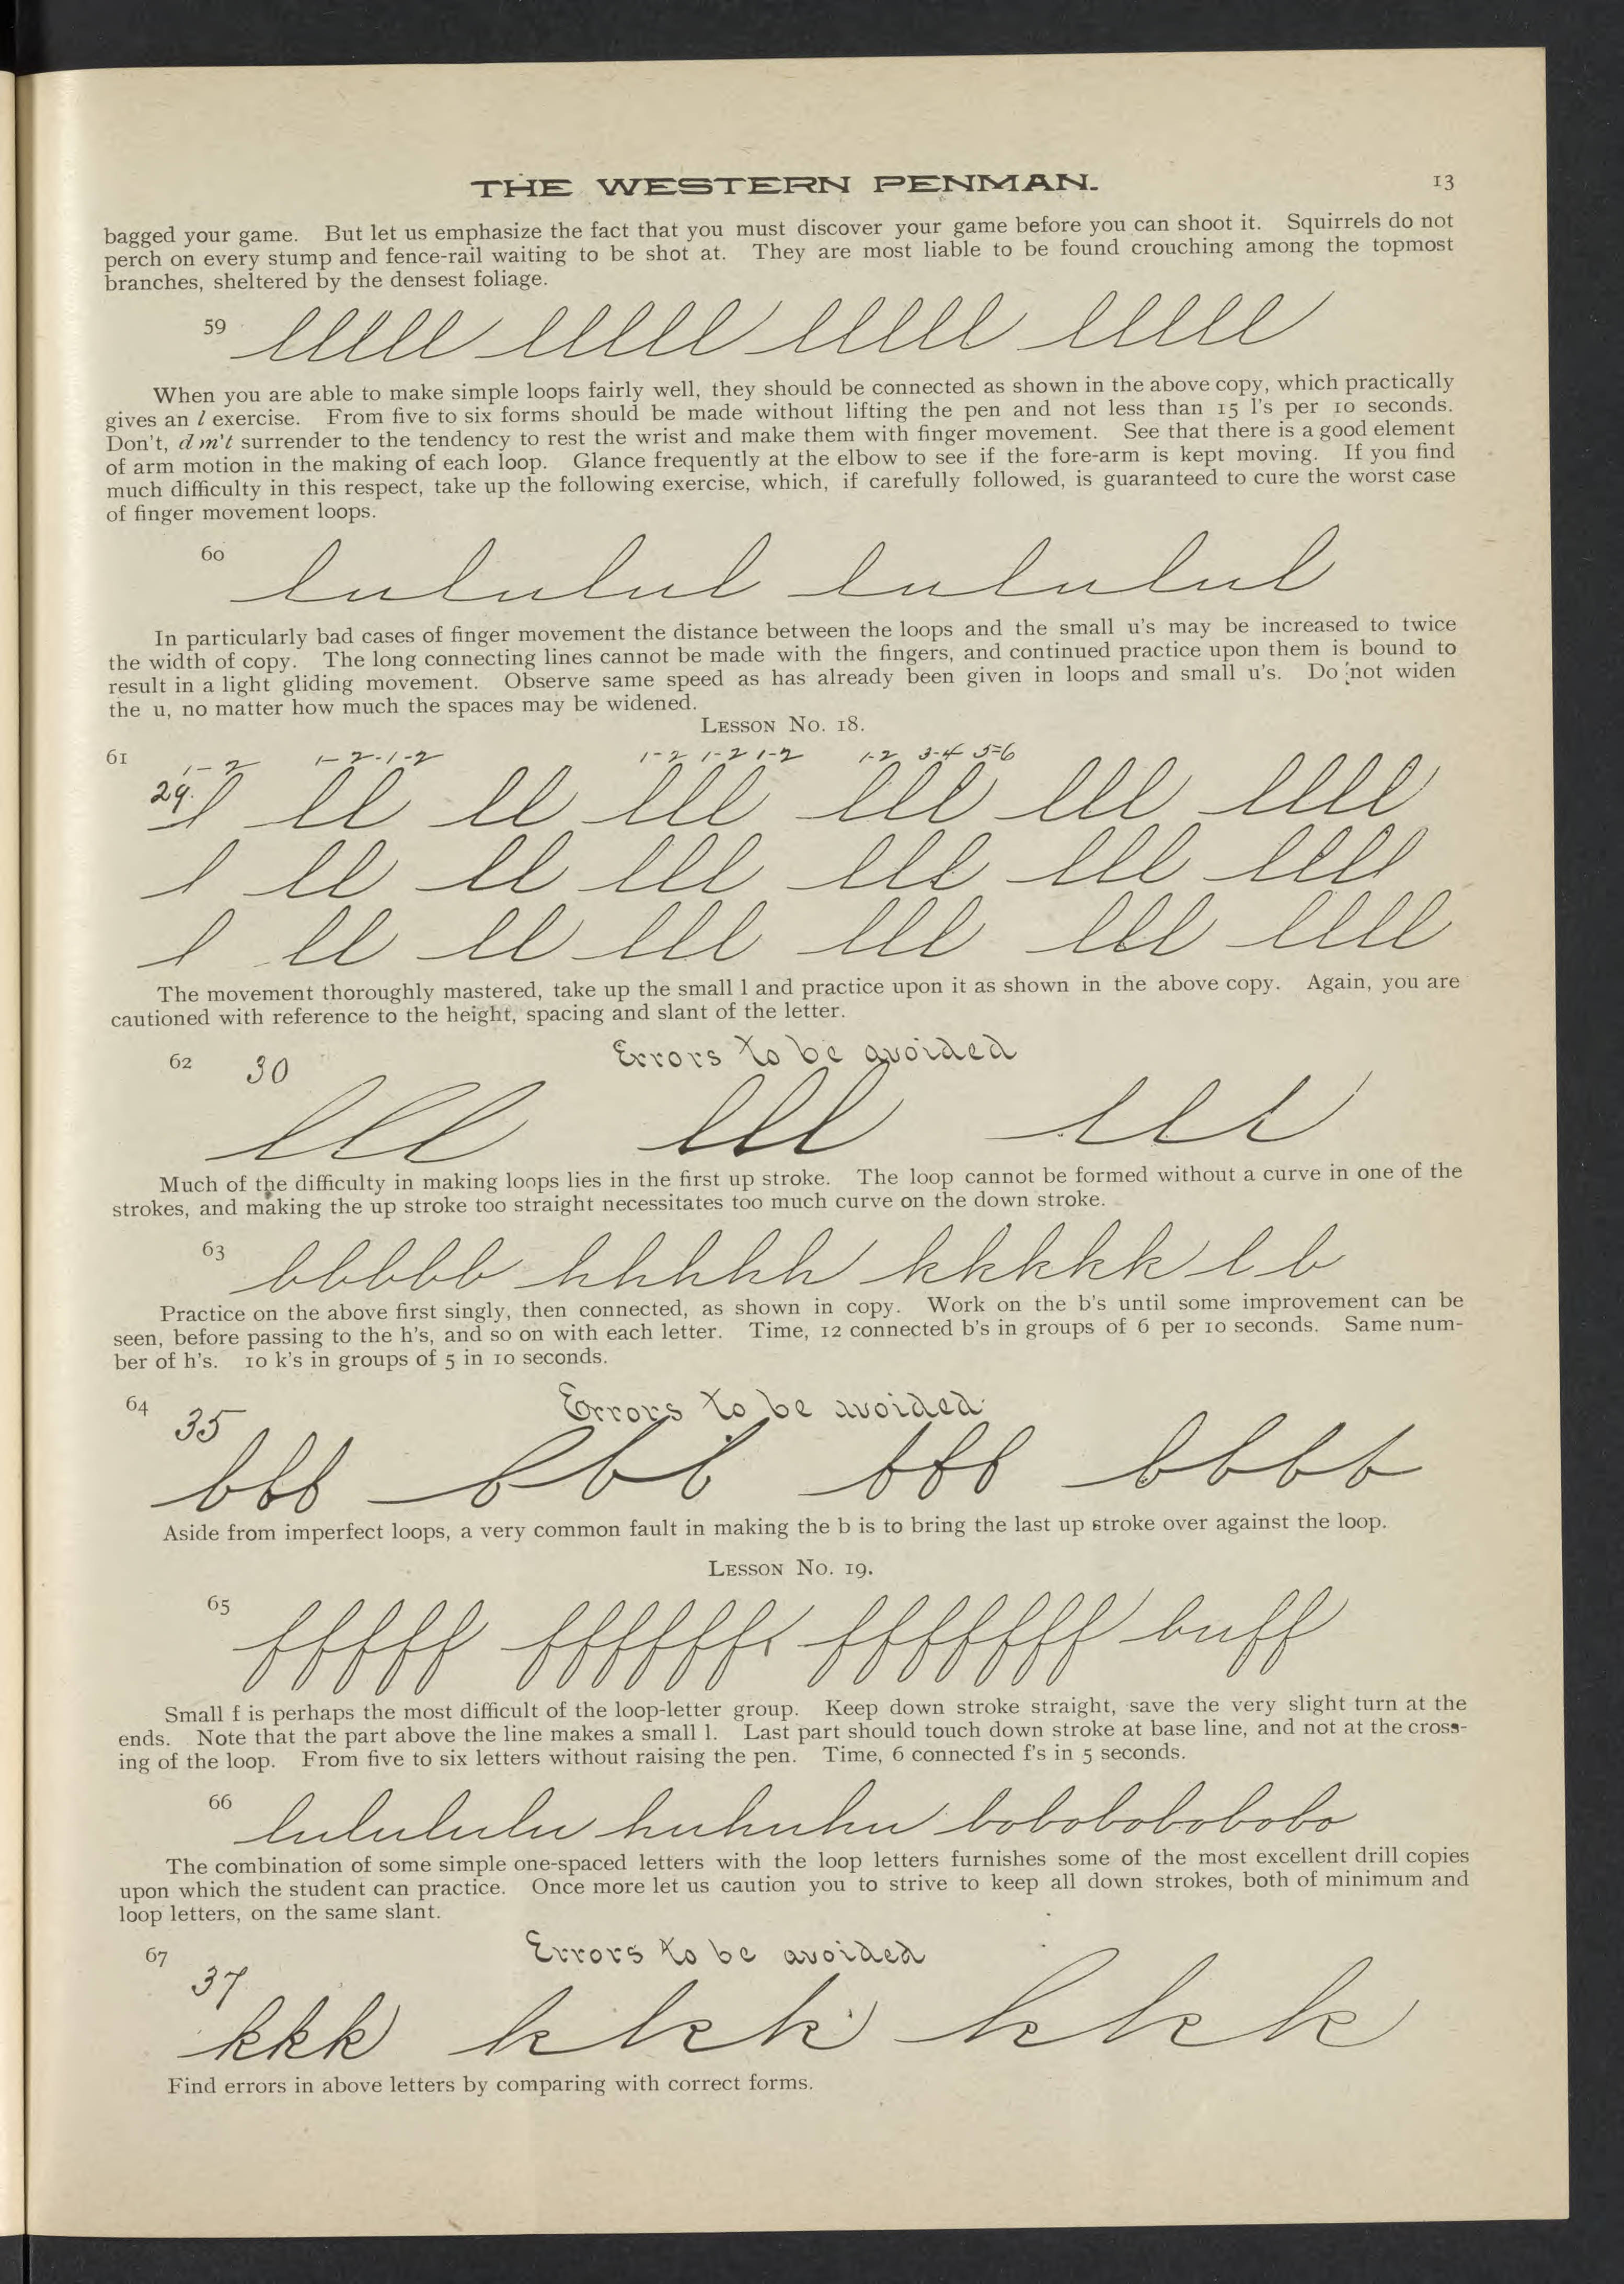 THE WESTERN PENMAN.
13
bagged your game. But let us emphasize the fact that you must discover your game before you can shoot it. Squirrels do not
perch on every stump and fence-rail waiting to be shot at. They are most liable to be found crouching among the topmost
branches, sheltered by the densest foliage.
59 lllll lllll lllll lllll
When you are able to make simple loops fairly well, they should be connected as shown in the above copy, which practically
gives an l exercise. From five to six forms should be made without lifting the pen and not less than 15 l's per 10 seconds.
Don't, d m't surrender to the tendency to rest the wrist and make them with finger movement. See that there is a good element
of arm motion in the making of each loop. Glance frequently at the elbow to see if the fore-arm is kept moving. If you find
much difficulty in this respect, take up the following exercise, which, if carefully followed, is guaranteed to cure the worst case
of finger movement loops.
60 lulululul lulululul
In particularly bad cases of finger movement the distance between the loops and the small u's may be increased to twice
the width of copy. The long connecting lines cannot be made with the fingers, and continued practice upon them is bound to
result in a light gliding movement. Observe same speed as has already been given in loops and small u's. Do not widen
the u, no matter how much the spaces may be widened.
LESSON No. 18.
61 1-2 1-2-1-2 1-2 1-2 1-2 1-2 3-4 5-6
29. l ll ll lll lll lll llll
l ll ll lll lll lll llll
l ll ll lll lll lll llll
The movement thoroughly mastered, take up the small l and practice upon it as shown in the above copy. Again, you are
cautioned with reference to the height, spacing and slant of the letter.
62 30 Errors to be avoided
lll lll lll
Much of the difficulty in making loops lies in the first up stroke. The loop cannot be formed without a curve in one of the
strokes, and making the up stroke too straight necessitates too much curve on the down stroke.
63 bbbbb hhhhh kkkkk l b
Practice on the above first singly, then connected, as shown in copy. Work on the b's until some improvement can be
seen, before passing to the h's, and so on with each letter. Time, 12 connected b's in groups of 6 per 10 seconds. Same num-
ber of h's. 10 k's in groups of 5 in 10 seconds.
64 35 Errors to be avoided
bbb bbb bbb bbbb
Aside from imperfect loops, a very common fault in making the b is to bring the last up stroke over against the loop.
LESSON No. 19.
65 fffff ffffff fffffff buff
Small f is perhaps the most difficult of the loop-letter group. Keep down stroke straight, save the very slight turn at the
ends. Note that the part above the line makes a small l. Last part should touch down stroke at base line, and not at the cross-
ing of the loop. From five to six letters without raising the pen. Time, 6 connected f's in 5 seconds.
66 lululululu huhuhuhu bobobobobobo
The combination of some simple one-spaced letters with the loop letters furnishes some of the most excellent drill copies
upon which the student can practice. Once more let us caution you to strive to keep all down strokes, both of minimum and
loop letters, on the same slant.
67 37 Errors to be avoided
kkk kkkk kkkk
Find errors in above letters by comparing with correct forms.